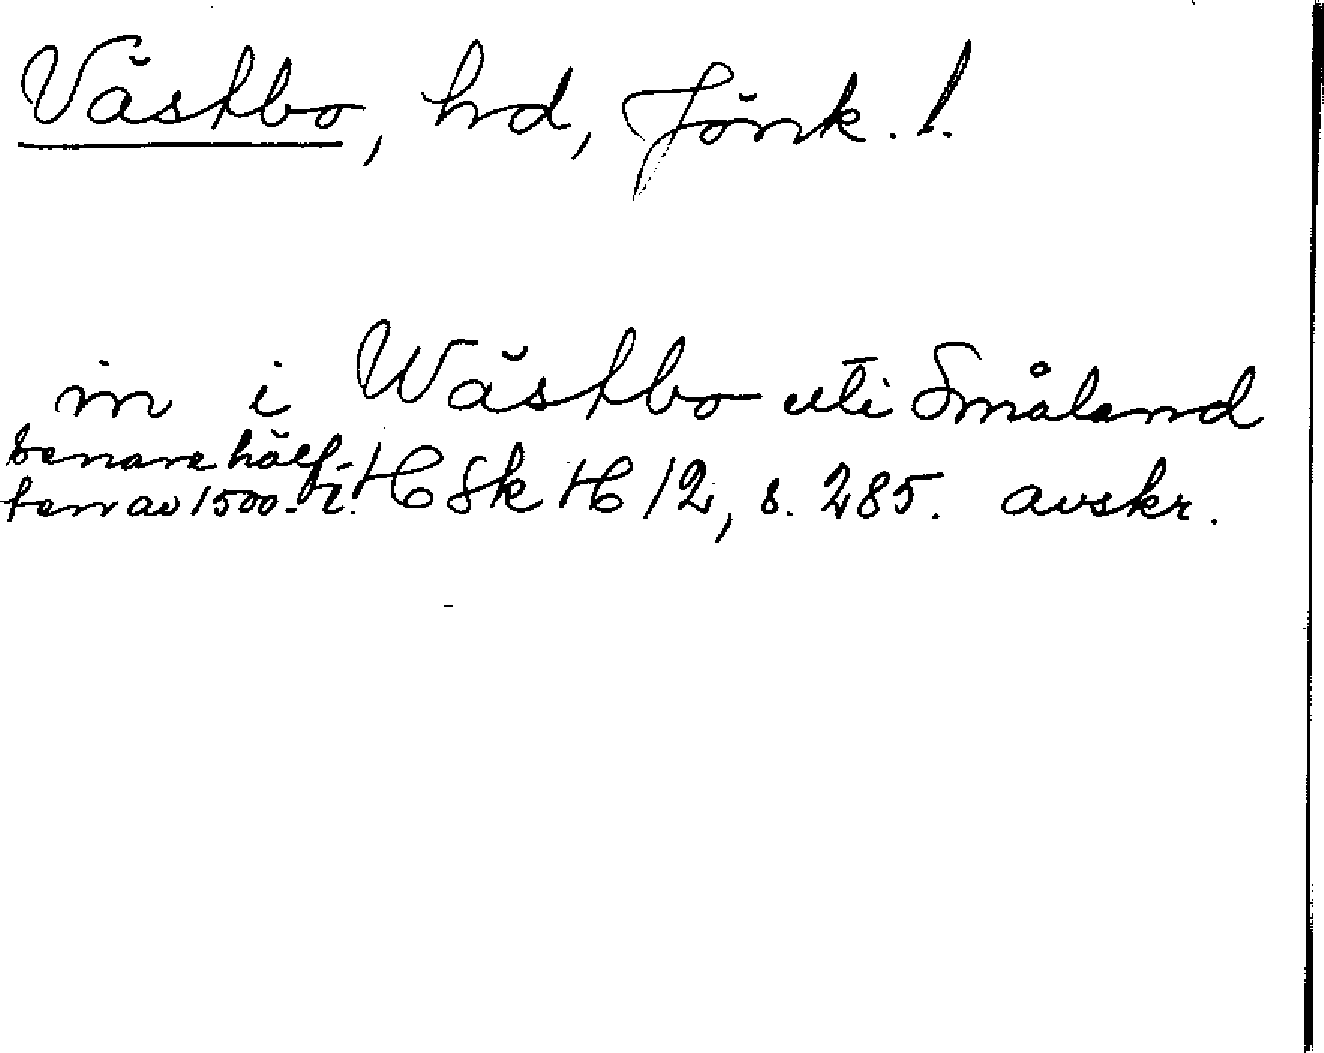 Västbo, hd, Jönk. l.
in i Wästbo uti Småland
senare hälf-
ten av 1500-t. HSk H 12, s. 285. avskr.